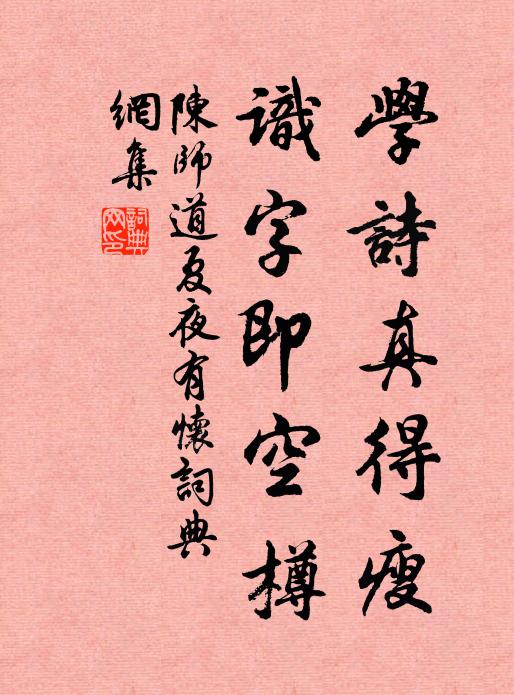 學詩真得瘦
識字即空樽
陳師道夏夜有懷詞典
網集
詞典
网印